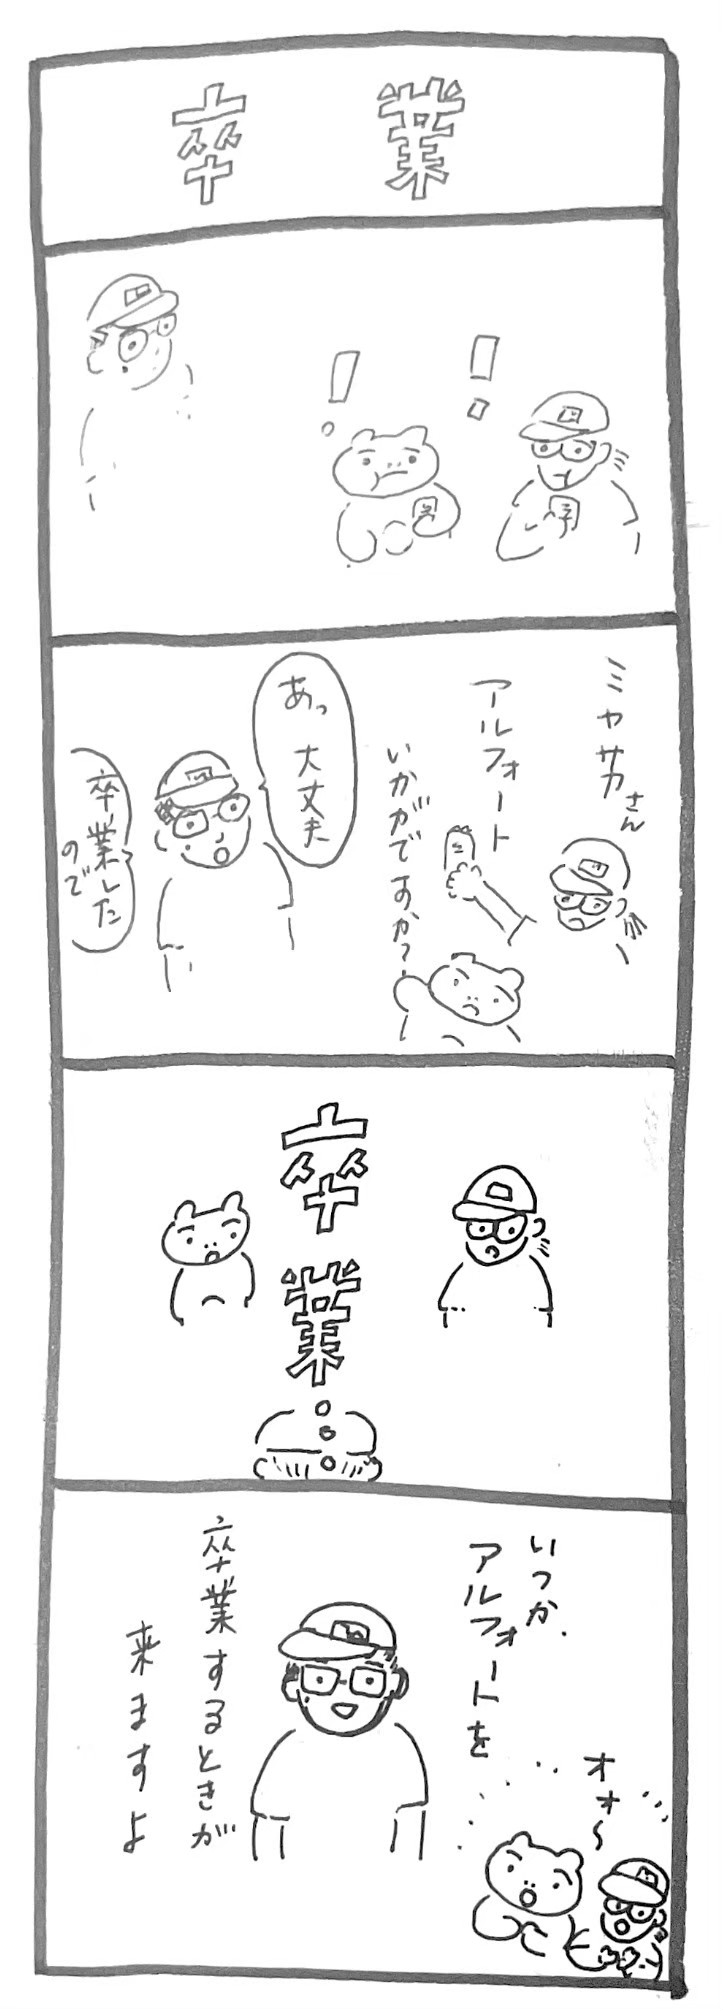 卒業
!
!
ミヤサカさん
アルフォート
いかがですか?
あっ大丈夫
卒業した
ので
卒業…
いつか、
アルフォートを
卒業するときが
来ますよ
オオ〜